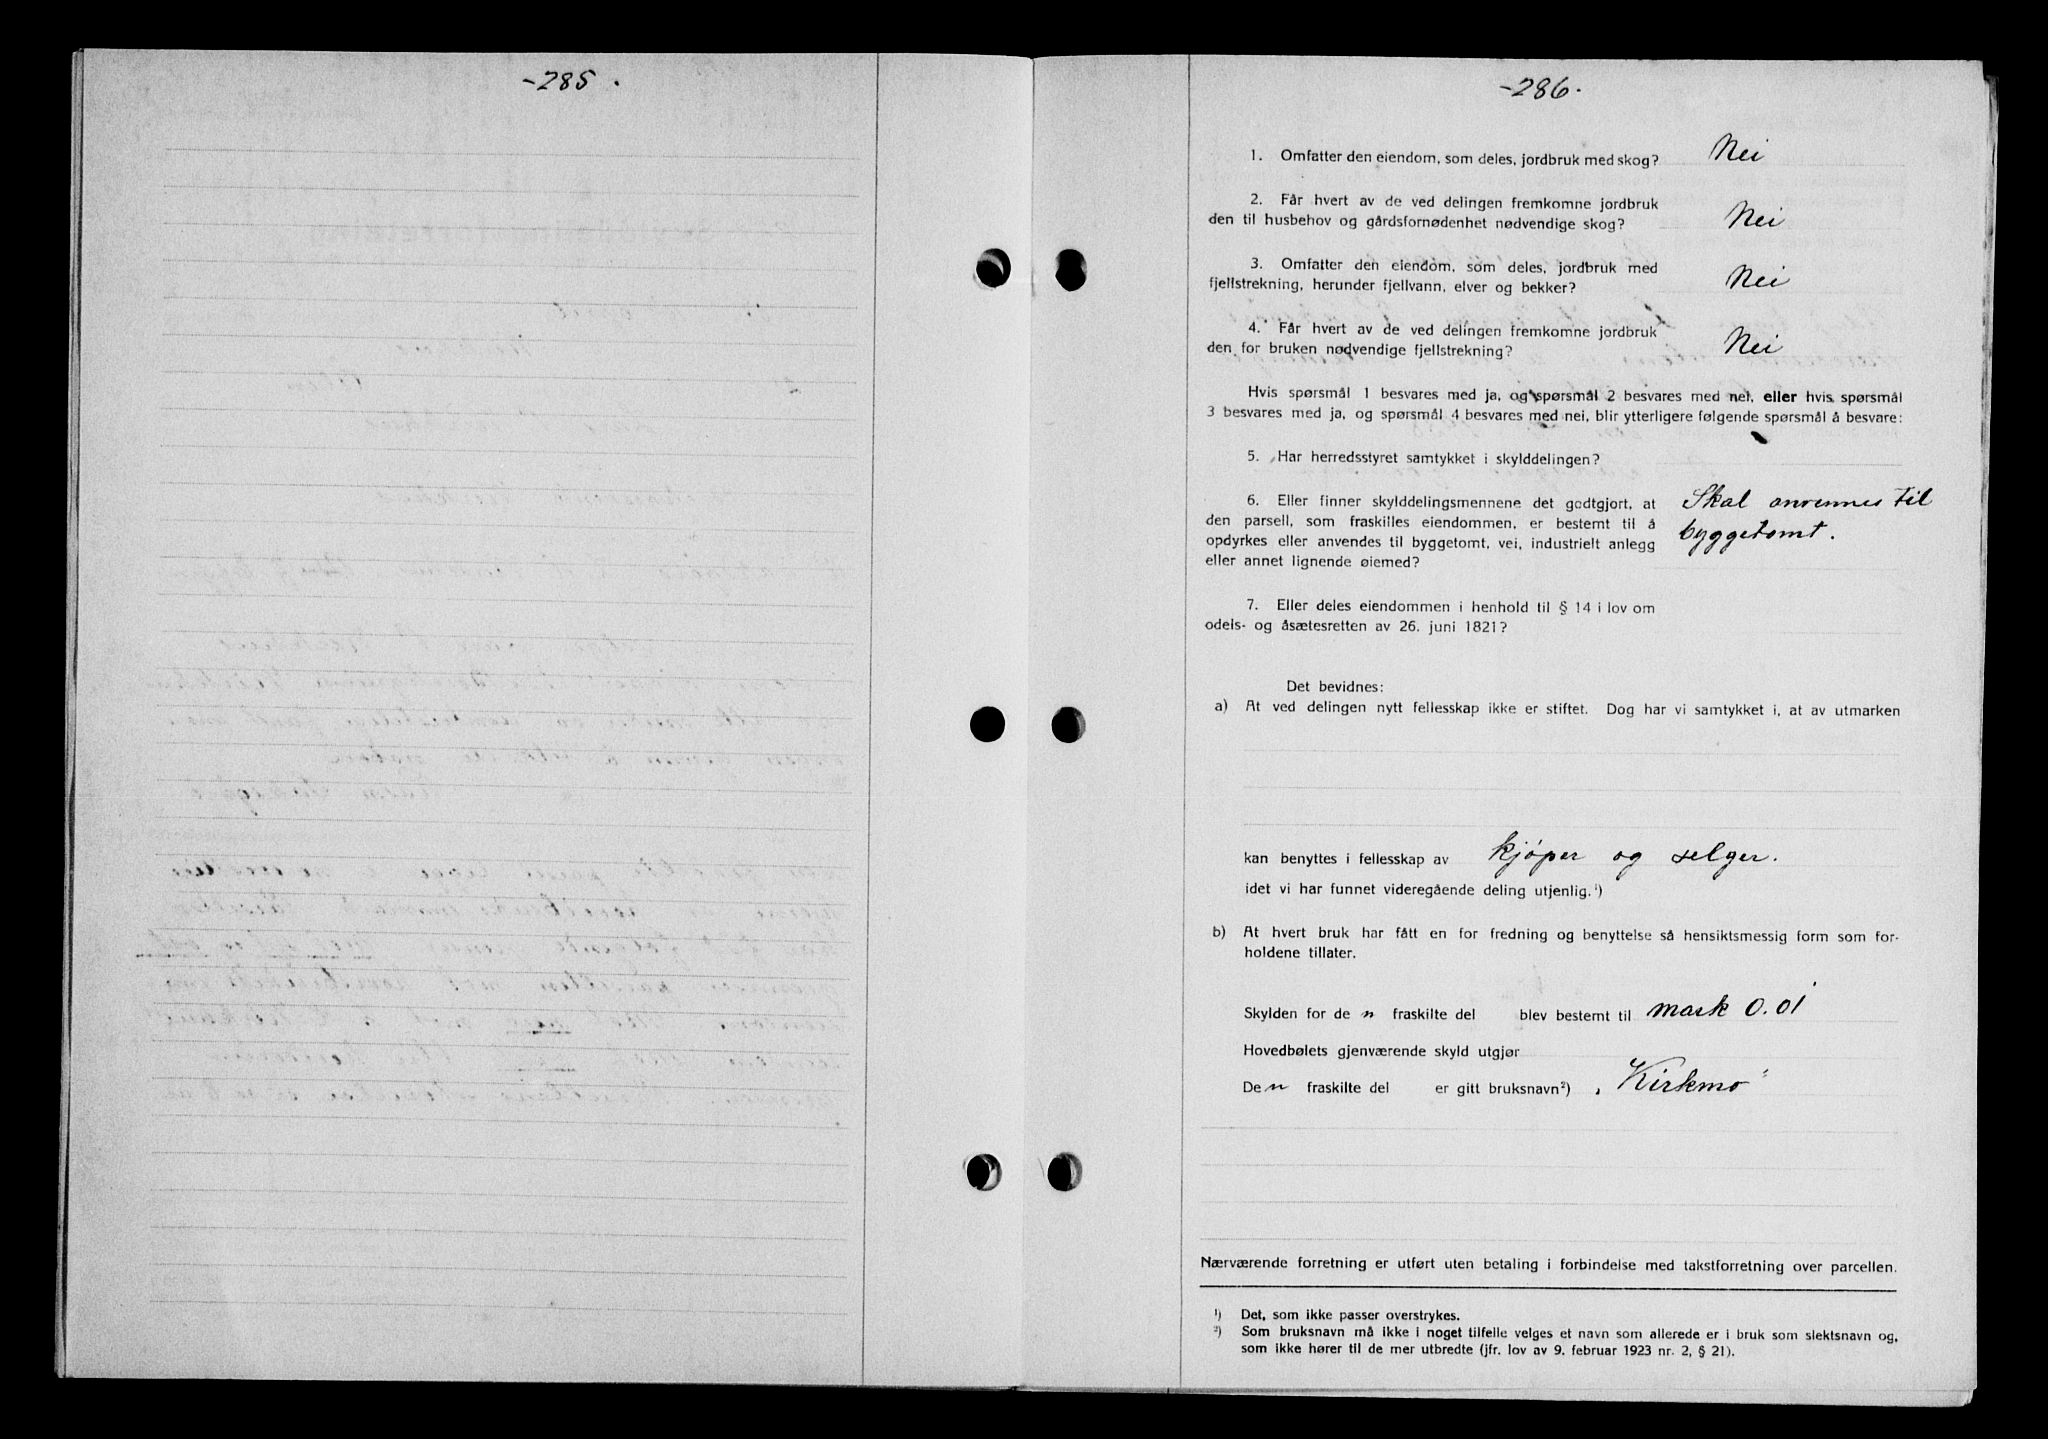 -285.
-286.
1. Omfatter den eiendom, som deles, jordbruk med skog? Nei
2. Får hvert av de ved delingen fremkomne jordbruk
den til husbehov og gårdsfornødenhet nødvendige skog? Nei
3. Omfatter den eiendom, som deles, jordbruk med
fjellstrekning, herunder fjellvann, elver og bekker? Nei
4. Får hvert av de ved delingen fremkomne jordbruk
den for bruken nødvendige fjellstrekning? Nei
Hvis spørsmål 1 besvares med ja, og spørsmål 2 besvares med nei, eller hvis spørsmål
3 besvares med ja, og spørsmål 4 besvares med nei, blir ytterligere følgende spørsmål å besvare:
5. Har herredsstyret samtykket i skylddelingen?
6. Eller finner skylddelingsmennene det godtgjort, at Skal anvennes til
den parsell, som fraskilles eiendommen, er bestemt til å byggetomt.
opdyrkes eller anvendes til byggetomt, vei, industrielt anlegg
eller annet lignende øiemed?
7. Eller deles eiendommen i henhold til § 14 i lov om
odels- og åsætesretten av 26. juni 1821?
Det bevidnes:
a) At ved delingen nytt fellesskap ikke er stiftet. Dog har vi samtykket i, at av utmarken
kan benyttes i fellesskap av kjøper og selger.
idet vi har funnet videregående deling utjenlig.¹)
b) At hvert bruk har fått en for fredning og benyttelse så hensiktsmessig form som for-
holdene tillater.
Skylden for de n fraskilte del blev bestemt til mark 0.01
Hovedbølets gjenværende skyld utgjør
De n fraskilte del er gitt bruksnavn²) „Kirkmo"
Nærværende forretning er utført uten betaling i forbindelse med takstforretning over parcellen.
¹) Det, som ikke passer overstrykes.
²) Som bruksnavn må ikke i noget tilfelle velges et navn som allerede er i bruk som slektsnavn og,
som ikke hører til de mer utbredte (jfr. lov av 9. februar 1923 nr. 2, § 21).